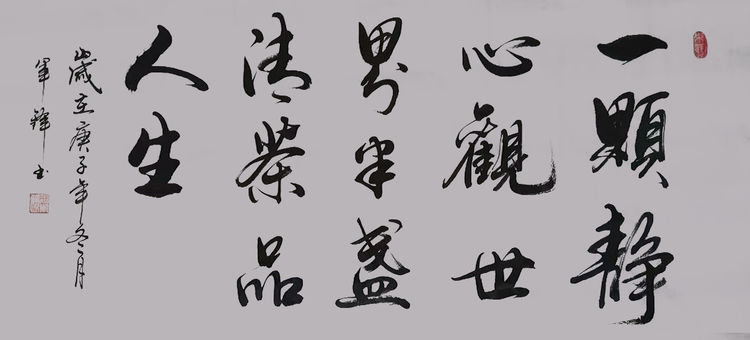 一顆靜
心觀世
界半盞
清茶品
人生
歲在庚子年冬月
书